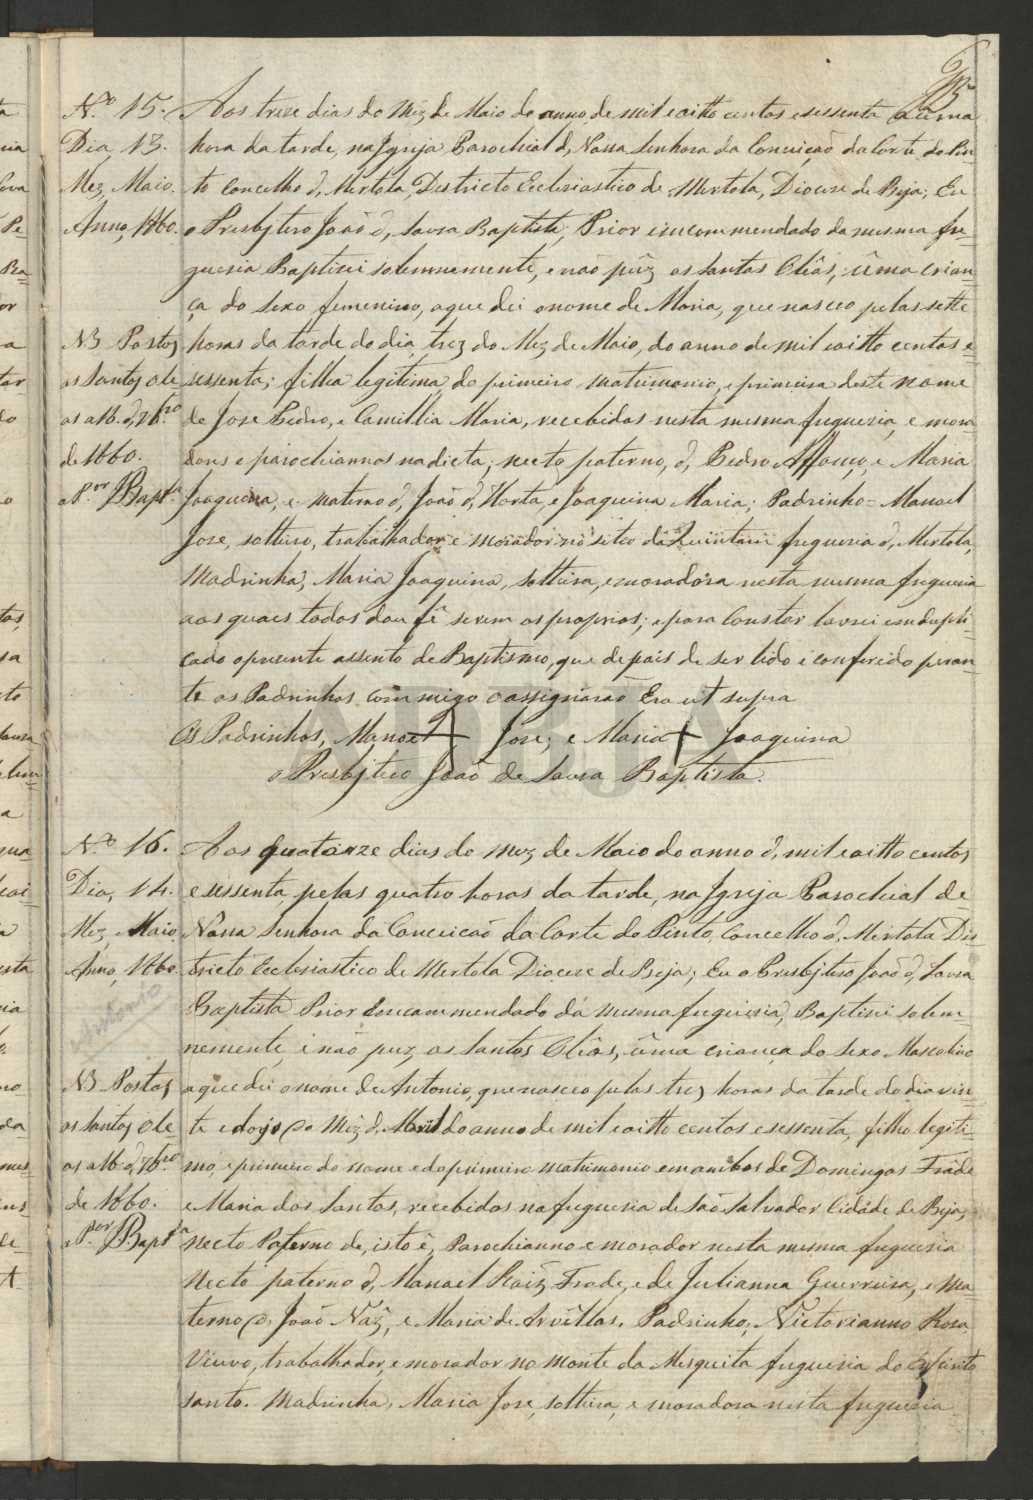 Nº 15.
Dia, 13.
Mez, Maio.
Anno, 1860.
NB Postos
os Santos ole
os a 16 d, 7bro
de 1860.
Pºr JBapta
Aos treze dias do Mez de Maio do anno de mil e oitto centos e sessenta a uma
hora da tarde, na Igreja Parochial d, Nossa Senhora da Conceiçaõ da Corte do Pin-
to Concelho d, Mertola, Destricto Ecclesiastico de Mertola, Diocese de Beja; Eu
o Presbjtero Joaõ d, Sousa Baptista, Prior emcommendado da mesma fre-
guesia Baptizei solemnemente, e naõ pûz os Santos Oliôs, ûma crian-
ça do sexo femenino, a que dei o nome de Maria, que nasceo pelas sette
horas da tarde do dia trez do Mez de Maio, do anno de mil e oitto centos e-
sessenta; filha legitima do primeiro matrimonio, e primeira deste nome
de Jose Pedro, e Camillia Maria, recebidos nesta mesma freguezia, e mora-
dores e parochiannos na dicta; necto paterno, d, Pedro Affonço, e Maria
Joaquina, e materno d, Joaõ d, Horta, e Joaquina Maria; Padrinho = Manoel
Jose, solteiro, trabalhador e morador no sitio da Quintam freguezia d, Mertola,
Madrinha, Maria Joaquina, solteira, e moradora nesta mesma freguezia
aos quaes todos dou fê serem os proprios; e para constar lavrei em dupli-
cado o presente assento de Baptismo, que depois de ser lido e conferido peran-
te os Padrinhos com migo o assignáraõ Era ut supra
Os Padrinhos, Manoel + Jose; e Maria + Joaquina
o Presbjtero Joaõ de Sousa Baptista.
Nº 16.
Dia, 14.
Mez, Maio
Anno, 1860.
Antonio
NB Postos
os Santos ole-
os a 16 d, 7bro
de 1860.
Pºr JBapta
Aos quatorze dias do Mez de Maio do anno d, mil e oitto centos
e sessenta, pelas quatro horas da tarde, na Igreja Parochial de-
Nossa Senhora da Conceicaõ da Corte do Pinto, Concelho d, Mertola Dis-
tricto Ecclesiastico de Mertola Diocese de Beja; Eu o Presbjtero Joaõ d, Sousa
Baptista Prior Emcommendado da mesma freguezia, Baptizei solem-
nemente, e não puz, os Santos Oliôs, ûma criança do sexo Mascolino
a que dei o nome de Antonio, que nasceo pelas trez horas da tarde do dia vin-
te e dojs do Mez d, Abril do anno de mil e oitto centos e sessenta, filho legiti-
mo, e primeiro do nome e do primeiro matrimonio em ambos de Domingos Frade
e Maria dos Santos, recebidos na freguesia de Saõ Salvador Cidade de Beja,
Necto Paterno de, isto é, Parochianno e morador nesta mesma freguesia
Necto paterno d, Manoel Roiz Frade, e de Julianna Guerreira, e ma-
terno, d, Joaõ Vâz, e Maria de Arvellos. Padrinho, Victorianno Rosa
Viuvo, trabalhador, e morador no monte da Mesquita freguezia do Espirito
santo. Madrinha, Maria Jose, solteira, e moradora nesta freguezia
ADBJA